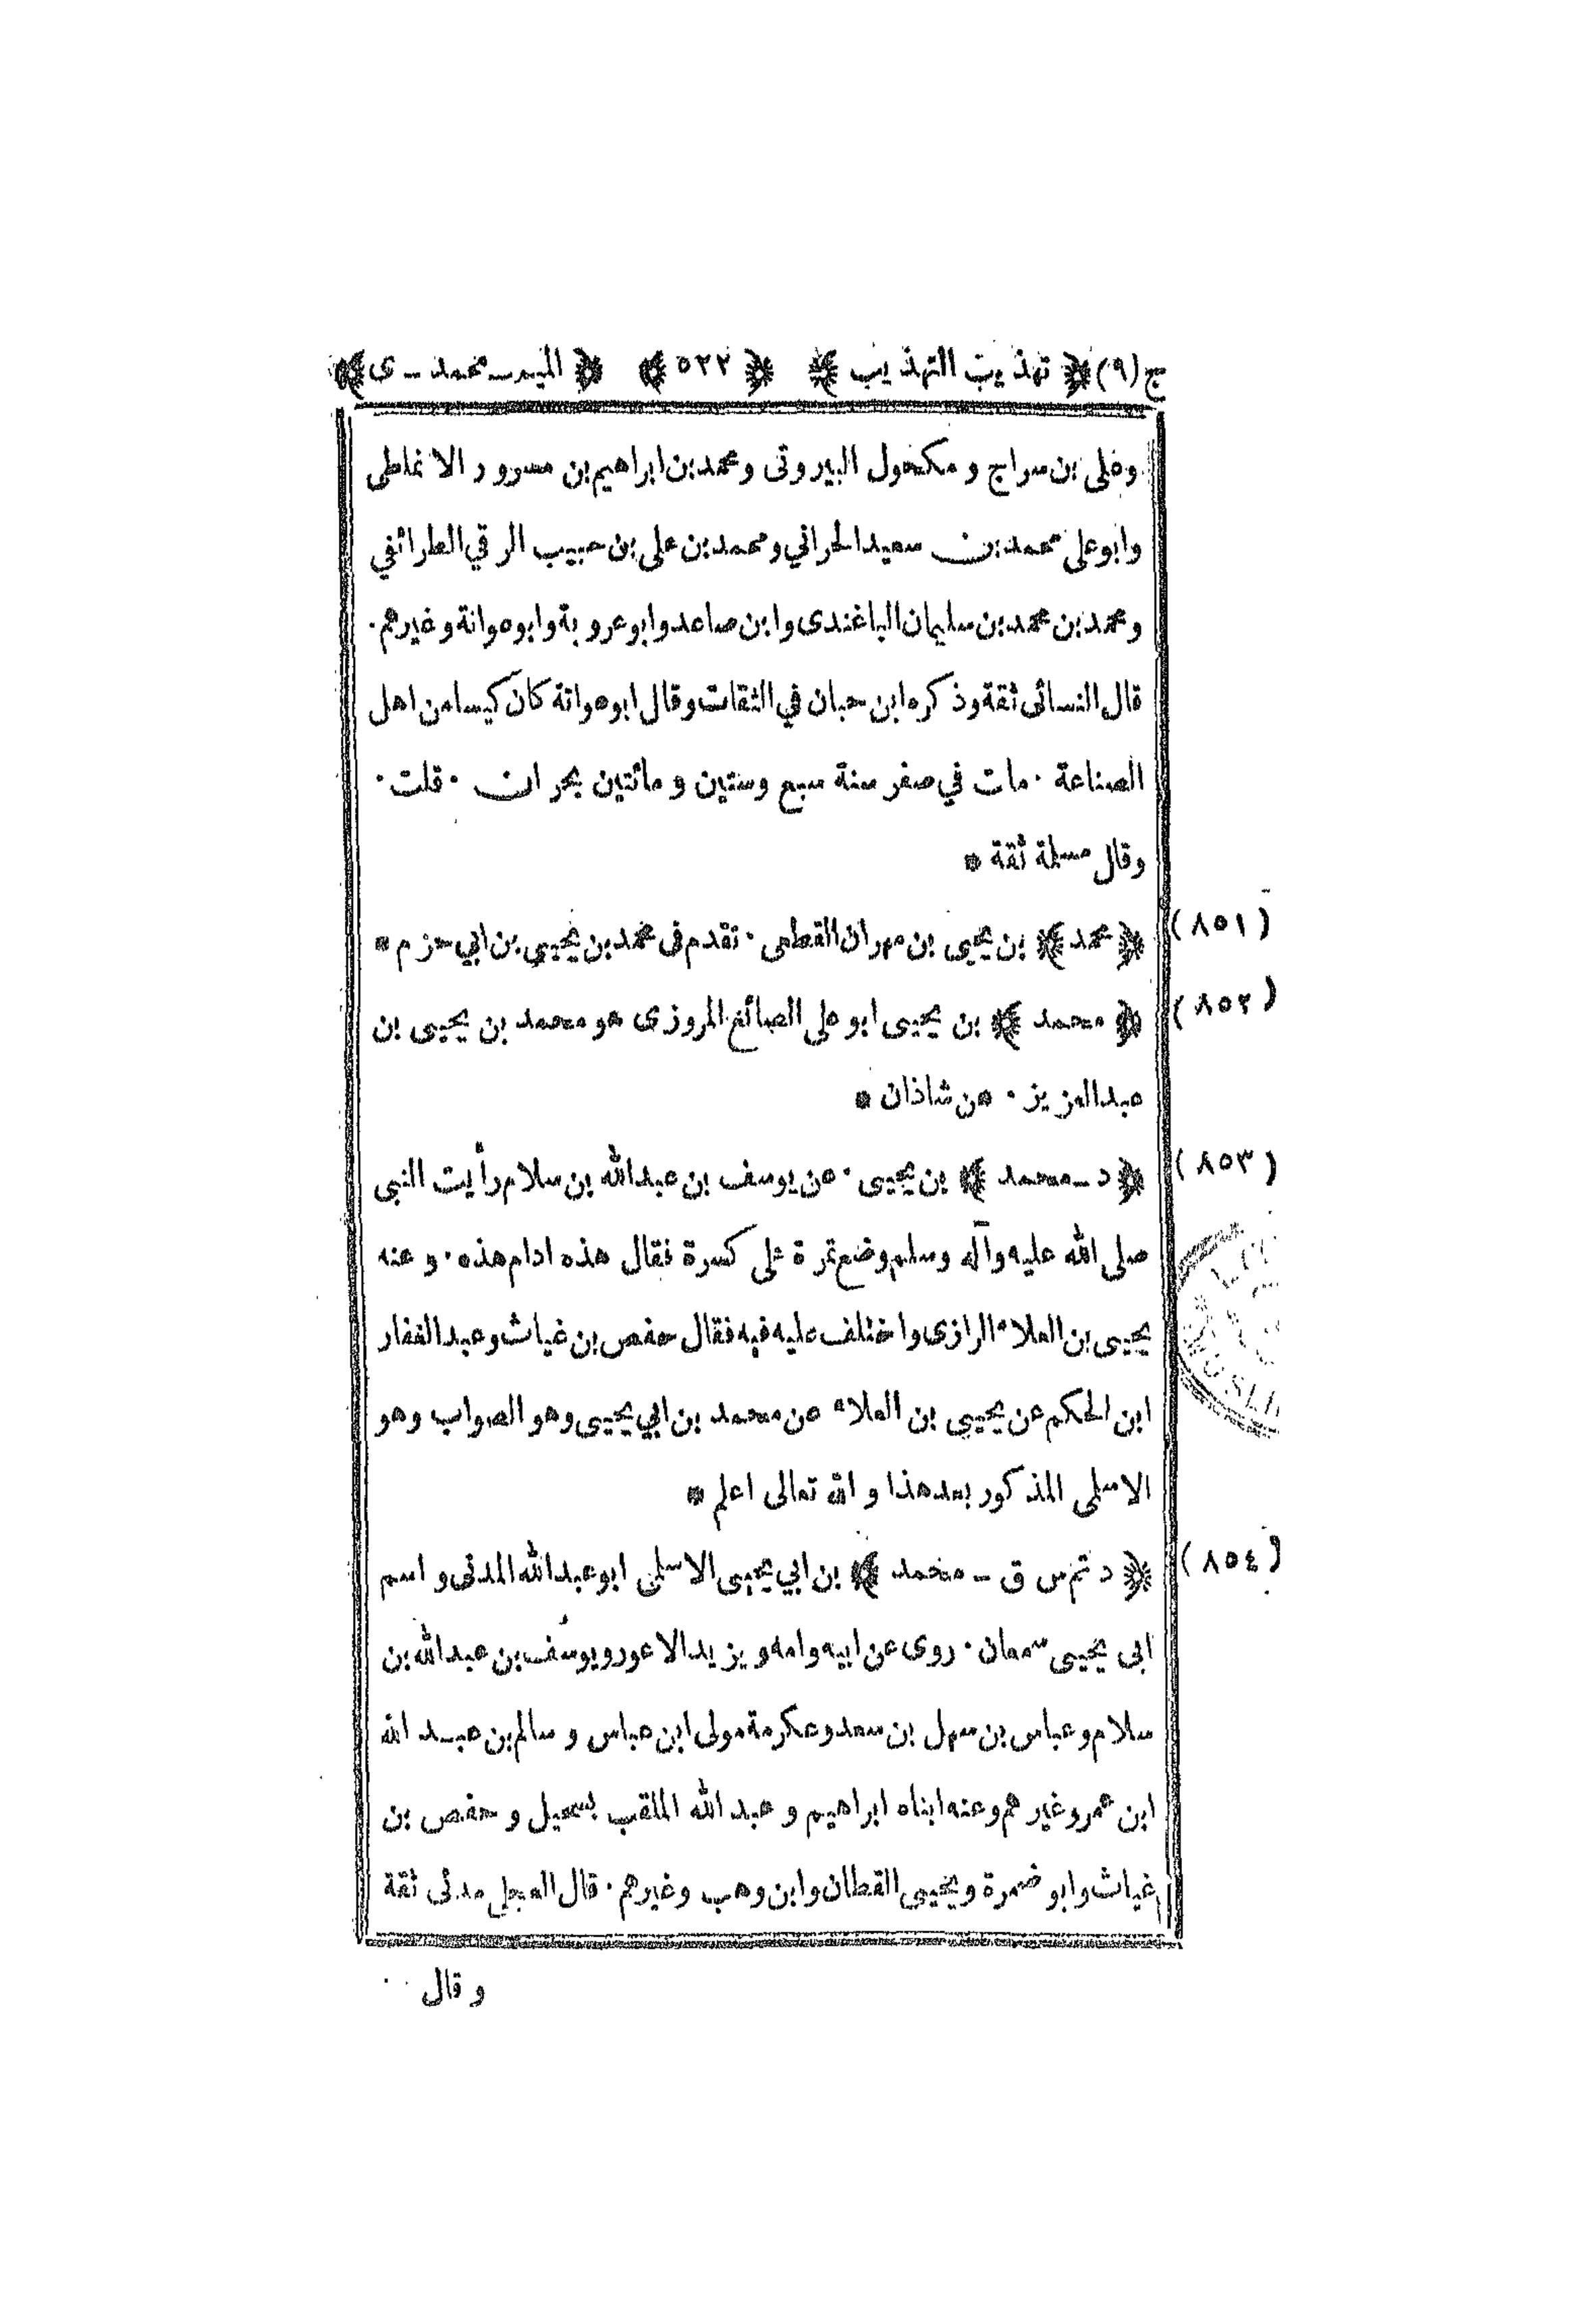 ج (٩) ﴿ تهذيب التهذيب ﴾ ﴿ ٥٢٢ ﴾ ﴿ الميم ـ محمد ـ ى ﴾
وعلى بن سراج و مكحول البيروتى ومحمد بن ابراهيم بن مسرور الانماطى
وابو على محمد بن سعيد الحراني ومحمد بن على بن حبيب الرقي الطرائفي
ومحمد بن محمد بن سليمان الباغندى وابن صاعد وابو عروبة وابو عوانة وغيرهم ·
قال النسائى ثقة وذكره ابن حبان في الثقات وقال ابو عوانة كان كيسا من اهل
الصناعة · مات في صفر سنة سبع وستين و مائتين بحران · قلت ·
وقال مسلمة ثقة *
(٨٥١) ﴿ محمد ﴾ بن يحيى بن مهران القطعى · تقدم فى محمد بن يحيى بن ابي حزم *
(٨٥٢) ﴿ محمد ﴾ بن يحيى ابو على الصائغ المروزى هو محمد بن يحيى بن
عبد العزيز · عن شاذان *
(٨٥٣) ﴿ د ـ محمد ﴾ بن يحيى · عن يوسف بن عبد الله بن سلام رأيت النبى
صلى الله عليه وآله وسلم وضع تمرة على كسرة فقال هذه ادام هذه · و عنه
يحيى بن العلاء الرازى واختلف عليه فيه فقال حفص بن غياث وعبد الغفار
ابن الحكم عن يحيى بن العلاء عن محمد بن ابي يحيى وهو الصواب وهو
الاسلمى المذكور بعد هذا و الله تعالى اعلم *
(٨٥٤) ﴿ د تم س ق ـ محمد ﴾ بن ابي يحيى الاسلمى ابو عبد الله المدنى و اسم
ابى يحيى سمعان · روى عن ابيه وامه ويزيد الاعور ويوسف بن عبد الله بن
سلام وعباس بن سهل بن سعد وعكرمة مولى ابن عباس و سالم بن عبد الله
ابن عمر وغيرهم وعنه ابناه ابراهيم و عبد الله الملقب بسحيل و حفص بن
غياث وابو ضمرة ويحيى القطان وابن وهب وغيرهم · قال العجلى مدنى ثقة
وقال